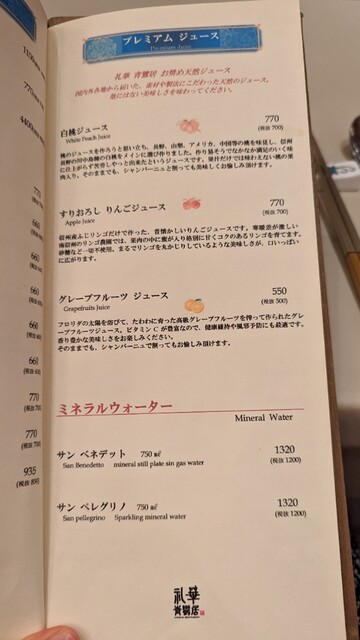 プレミアム ジュース
Premium Juice
礼華 青鸞居 お勧め天然ジュース
国内外各地から届いた、素材や製法にこだわった天然のジュース。
他にはない美味しさを味わってください。
白桃ジュース
770
White Peach Juice
(税抜 700)
桃のジュースを作ろうと思い立ち、長野、山梨、アメリカ、中国等の桃を味見し、信州
長野の川中島種の白桃をメインに選び作りました。作り易そうでなかなか満足のいく味
に仕上がらず苦労しやっと出来たというジュースです。果汁だけでは味わえない桃の果
肉入り。そのままでも、シャンパーニュと割っても美味しくお愉しみ頂けます。
すりおろし りんごジュース
770
Apple Juice
(税抜 700)
信州産ふじリンゴだけで作った、昔懐かしいりんごジュースです。寒暖差が激しい
南信州のリンゴ農園では、果肉の中に蜜が入り格別に甘くコクのあるリンゴを育てます。
砂糖など一切不使用。まるでリンゴを丸かじりしているような美味しさが、口いっぱい
に広がります。
グレープフルーツ ジュース
550
Grapefruits Juice
(税抜 500)
フロリダの太陽を浴びて、たわわに育った高級グレープフルーツを搾って作られたグレ
ープフルーツジュース。ビタミンCが豊富なので、健康維持や風邪予防にも最適です。
香り豊かな美味しさをお楽しみください。
そのままでも、シャンパーニュで割ってもお愉しみ頂けます。
ミネラルウォーター
Mineral Water
サン ベネデット 750㎖
1320
San Benedetto mineral still plate sin gas water
(税抜 1200)
サン ペレグリノ 750㎖
1320
San pellegrino Sparkling mineral water
(税抜 1200)
礼華
青鸞居
770
660
660
660
660
660
770
770
935